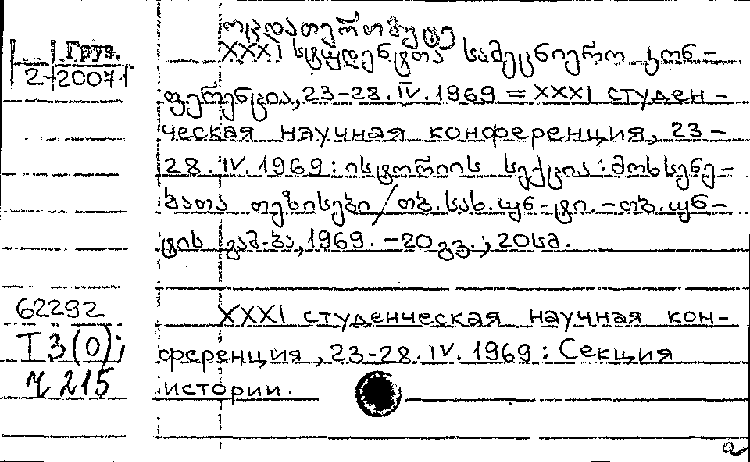 ოცდათერთმეტე
Груз.
2-20071
XXXI სტუდენტთა სამეცნიერო კონ-
ფერენცია, 23-28.IV.1969 = XXXI студен-
ческая научная конференция, 23-
28.IV.1969: ისტორიის სექცია: მოხსენე-
ბათა თეზისები / თბ. სახ. უნ-ტი. -თბ. უნ-
ტის გამ-ბა, 1969. -20 გვ.; 20 სმ.
62292
XXXI студенческая научная кон-
Т3(0);
ференция, 23-28.IV.1969: Секция
Ч 215
истории.